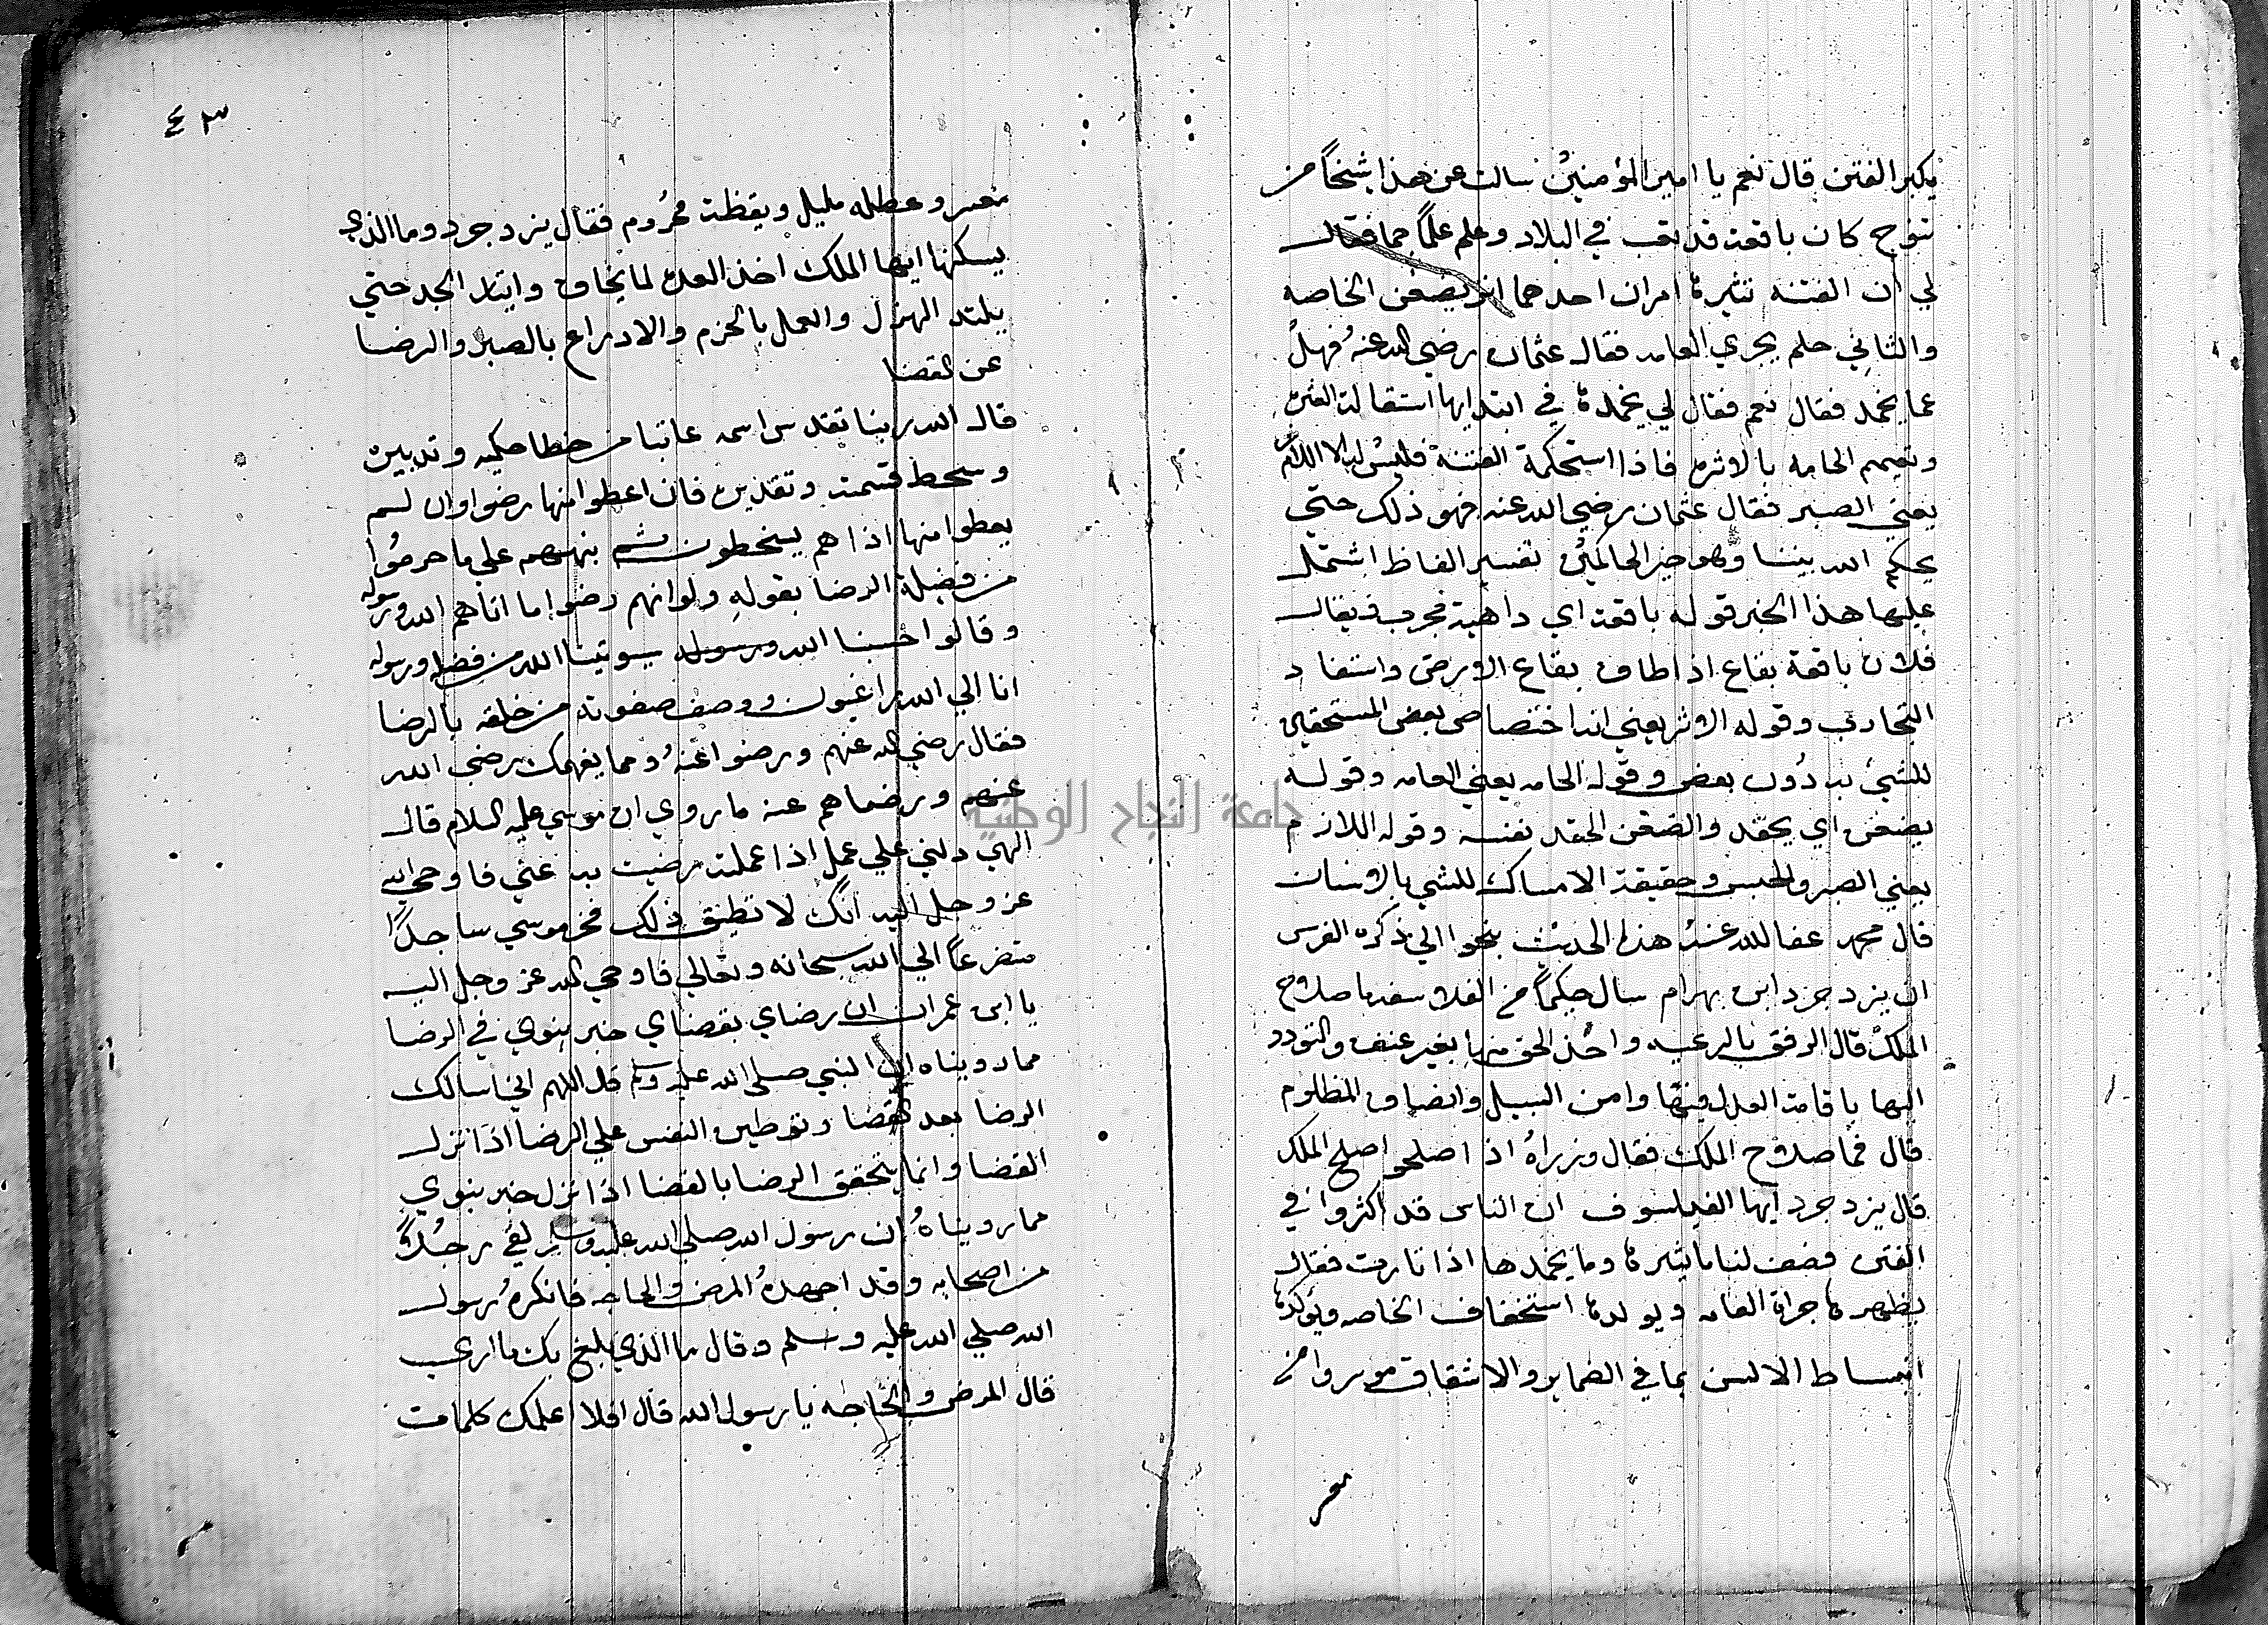 يكبر الفتن قال نعم يا امير المؤمنين سالت عن هذا شيخاً من
تنوخ كان باقعة قد نقب في البلاد وعلم علماً جما فقال
لي ان الفتنه تثيرها امران احدهما اثر يضغن الخاصه
والثاني حلم يجري العامه فقال عثمان رضي الله عنه فهل
عما يخمد فقال نعم فقال لي يخمدها في ابتدايها استقالة العثرة
وتعميم الحامه بالاثرة فاذا استحكمة الفتنة فليس لها الا اللازم
يعني الصبر فقال عثمان رضي الله عنه فهو ذلك حتي
يحكم الله بيننا وهو خير الحاكمين تفسير الفاظ اشتمل
عليها هذا الخبر قوله باقعة اي داهية مجرب فيقال
فلان باقعة بقاع اذا طاف بقاع الارض واستفاد
التجارب وقوله الاثر يعني انه اختصاص بعض المستحقين
للشئ به دون بعض وقوله الحامه يعني العامه وقوله
يضغن اي يحقد والضغن الحقد نفسه وقوله اللازم
يعني الصبر والحبس وحقيقة الامساك للشي بالاسنان
قال محمد عفا الله عنه هذا الحديث ينحوا الي ذكره الفرس
ان يزدجرد ابن بهرام سال حكيماً من الفلاسفه ما صلاح
الملك قال الرفق بالرعيه واخذ الحق منها بغير عنف والتودد
اليها باقامة العدل فيها وامن السبيل وانصاف المظلوم
قال فما صلاح الملك فقال وزراه اذا اصلحوا صلح الملك
قال يزدجرد ايها الفيلسوف ان الناس قد اكثروا في
الفتن فصف لنا ما يثيرها وما يخمدها اذا ثارت فقال
يظهرها جراة العامه ويولدها استخفاف الخاصه ويؤكدها
انبساط الالسن بما في الضماير والاشفاق موسر وامن
معسر
٤٣
معسر وعطله مليل ويقظة محروم فقال يزدجرد وما الذي
يسكنها ايها الملك اخذ العدة لما يخاف وايثار الجد حتي
يلتذ الهزل والعمل بالحزم والادراع بالصبر والرضا
عن القضا
قال الله ربنا تقدس اسمه عاتبا من خطا حكمه وتدبيره
وسخط قسمته وتقديره فان اعطوا منها رضوا وان لم
يعطوا منها اذا هم يسخطون ثم نبههم علي ما حرموا
من فضيلة الرضا بقوله ولو انهم رضوا ما اتاهم الله ورسوله
وقالوا حسبنا الله ورسوله سيوتينا الله من فضله ورسوله
انا الي الله راغبون ووصف صفوته من خلقه بالرضا
فقال رضي الله عنهم ورضوا عنه ومما يفهمك رضي الله
عنهم ورضاهم عنه ما روي ان موسي عليه السلام قال
الهي دلني علي عمل اذا عملته رضيت به عني فاوحي الله
عز وجل اليه انك لا تطيق ذلك فخر موسي ساجداً
متضرعاً الي الله سبحانه وتعالي فاوحي الله عز وجل اليه
يا ابن عمران ان رضاي بقضاي خبر نبوي في الرضا
مما رويناه ان النبي صلى الله عليه وسلم قال اللهم اني اسالك
الرضا بعد القضا وتوطين النفس علي الرضا اذا نزل
القضا وانما يتحقق الرضا بالقضا اذا نزل خبر نبوي
مما رويناه ان رسول الله صلي الله عليه وسلم لقي رجلاً
من اصحابه وقد اجهده المرض والحاجه فانكره رسول
الله صلي الله عليه وسلم وقال ما الذي بلغ بك ما اري
قال المرض والحاجه يا رسول الله قال افلا اعلمك كلمات
جامعة النجاح الوطنية